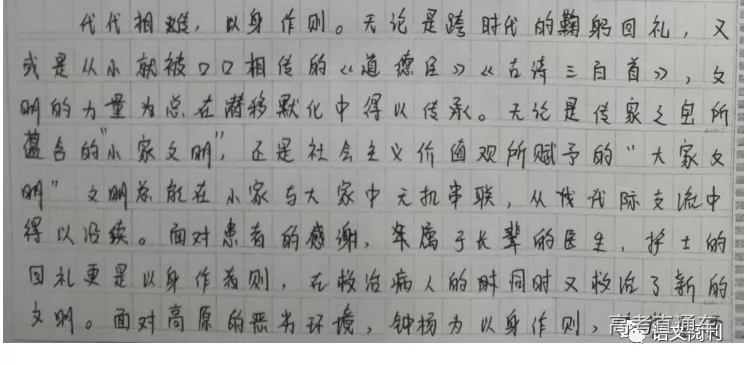 代代相难，以身作则。无论是跨时代的鞠躬回礼，又
或是从小就被口口相传的《道德经》《古诗三百首》，文
明的力量为总在潜移默化中得以传承。无论是传家之宝所
蕴含的"小家文明"，还是社会主义价值观所赋予的"大家文
明" 文明总能在小家与大家中无机串联，从代代际交流中
得以沿续。面对患者的感谢，年属于长辈的医生，护士的
回礼更是以身作为则，在救治病人的时同时又救治了新的
文明。面对高原的恶劣环境，钟扬为以身作则，
高考直通车
语文阅刊